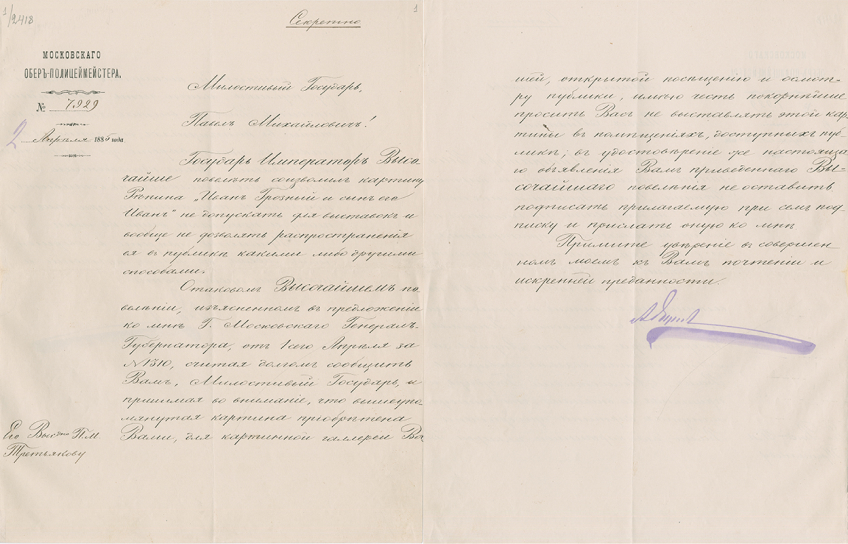 1/2418
Секретно
МОСКОВСКАГО
ОБЕРЪ-ПОЛИЦЕЙМЕЙСТЕРА.
№ 7929
2 Апрѣля 1885 года
Милостивый Государь,
Павелъ Михайловичъ!
Государь Императоръ Высо-
чайше повелѣть соизволилъ картину
Рѣпина „Иванъ Грозный и сынъ его
Иванъ" не допускать для выставокъ и
вообще не дозволять распространенія
ея въ публикѣ какими либо другими
способами.
О таковомъ Высочайшемъ по-
велѣніи, изъясненномъ въ предложеніи
ко мнѣ Г. Московскаго Генералъ-
Губернатора, отъ 1 сего Апрѣля за
№ 1310, считая долгомъ сообщить
Вамъ, Милостивый Государь, и
принимая во вниманіе, что вышеупо-
мянутая картина пріобрѣтена
Вами, для картинной галлереи Ва
Его Высо П. М.
Третьякову
1
шей, открытой посѣщенію и осмот-
ру публики, имѣю честь покорнѣйше
просить Васъ не выставлять этой кар-
тины въ помѣщеніяхъ, доступныхъ пуб-
ликѣ; въ удостовѣреніе же настояща-
го объявленія Вамъ приведеннаго Вы-
сочайшаго повелѣнія не оставить
подписать прилагаемую при семъ под-
писку и прислать оную ко мнѣ
Примите увѣреніе въ совершен-
номъ моемъ къ Вамъ почтеніи и
искренней преданности.